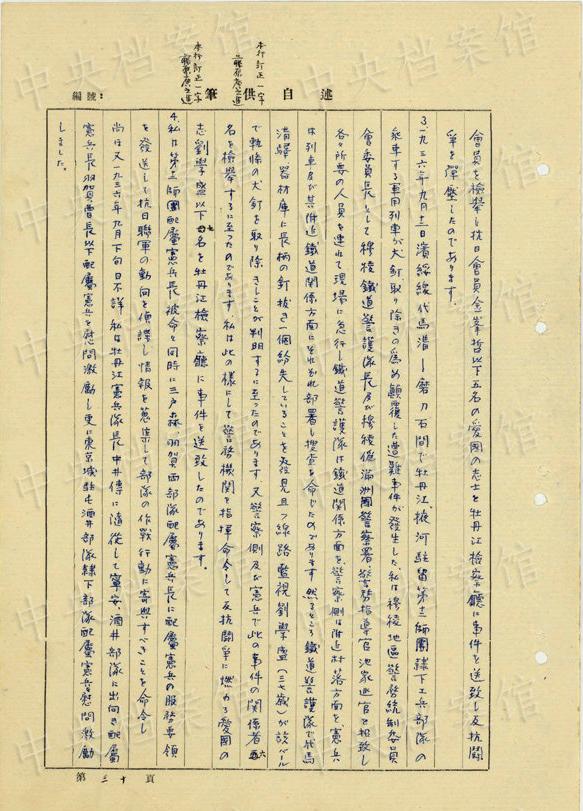 述 自 供 筆
編號：
本行訂正一字
藤原広之進
本行訂正一字
藤原広之進
会員を検挙し抗日会員金峯哲以下五名の愛国の志士を牡丹江検察庁に事件を送致し反抗闘
争を弾圧したのであります。
3.一九三六年九月十三日濱綏線代馬溝ー磨刀石間で牡丹江掖河駐留第十二師團隷下工兵部隊の
乗車する軍用列車が犬釘取り除きの為め顛覆した遭難事件が発生した、私は穆稜地區警務統制委員
会委員長として穆稜鐵道警護隊長及び穆稜偽満洲國警察署警務指導官池冢巡官と招致し
各々所要の人員を連れて現場に急行し鐵道警護隊は鐵道関係方面を、警察側は附近村落方面を、憲兵
は列車及び其附近鐵道関係方面にそれぞれ部署し捜査を命じたのであります 然るところ鐵道警護隊で代馬
溝驛器材庫に長柄の釘抜き一個紛失していることを発見且つ線路監視劉學盛(三七歳)が該バール
で軌條の犬釘を取り除きしことが判明するに至ったのであります 又警察側及び憲兵で此の事件の関係者六
名を検挙するに至ったのであります、私は此の様にして警務機関を指揮命令して反抗闘争に燃ゆる愛國の
志劉學盛以下七名を牡丹江検察廳に事件を送致したのであります。
4.私は第十二師團配屬憲兵長被命と同時に三戸森、羽賀両部隊配屬憲兵長に配屬憲兵の服務要領
を発送して抗日聯軍の動向を偵諜し情報を蒐集して部隊の作戦行動に寄與すべきことを命令し
尚ほ又一九三六年九月下旬日不詳 私は牡丹江憲兵隊長中井傳に隨従して寧安、酒井部隊に出向き配屬
憲兵長羽賀曹長以下配屬憲兵を慰問激勵し更に東京城駐屯酒井部隊隷下部隊配屬憲兵を慰問激勵
しました。
第 三十 頁
中央档案馆